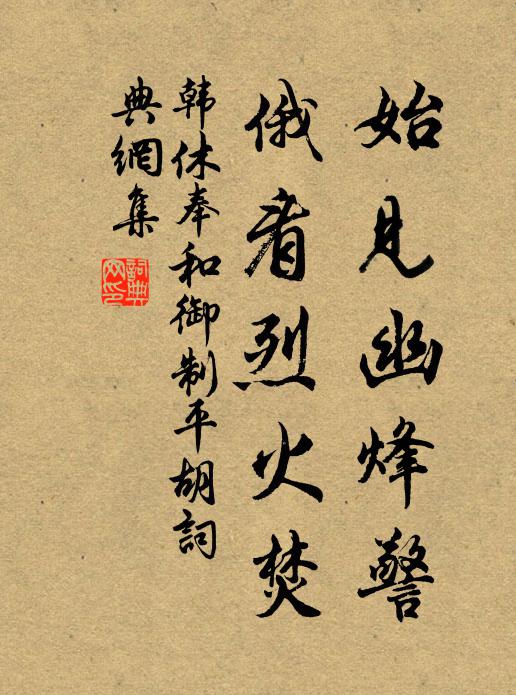 始見幽烽警
俄看烈火焚
韩休奉和御制平胡詞
典網集
詞典網印